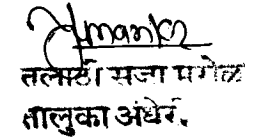 तलाठी सजा मगोळ
तालुका अंधेरी.